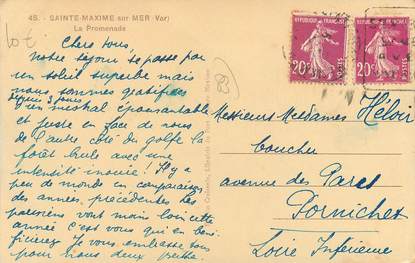 48. - SAINTE-MAXIME-sur-MER (Var)
La Promenade
Chers tous,
Notre séjour se passe par
un soleil superbe mais
nous sommes gratifiés
depuis 3 jours
un mistral épouvantable
et juste en face de nous
de l'autre côté du golfe la
forêt brule avec une
intensité inouïe! Il y a
peu de monde en comparaison
des années précédentes les
parisiens vont moins loin cette
année c'est vous qui en béné-
ficierez Je vous embrasse tous
pour nous deux
83
RÉPUBLIQUE FRANÇAISE
20c
POSTES
RÉPUBLIQUE FRANÇAISE
20c
POSTES
Messieurs Mesdames Héloir
boucher
avenue des Parcs
Pornichet
Loire Inférieure